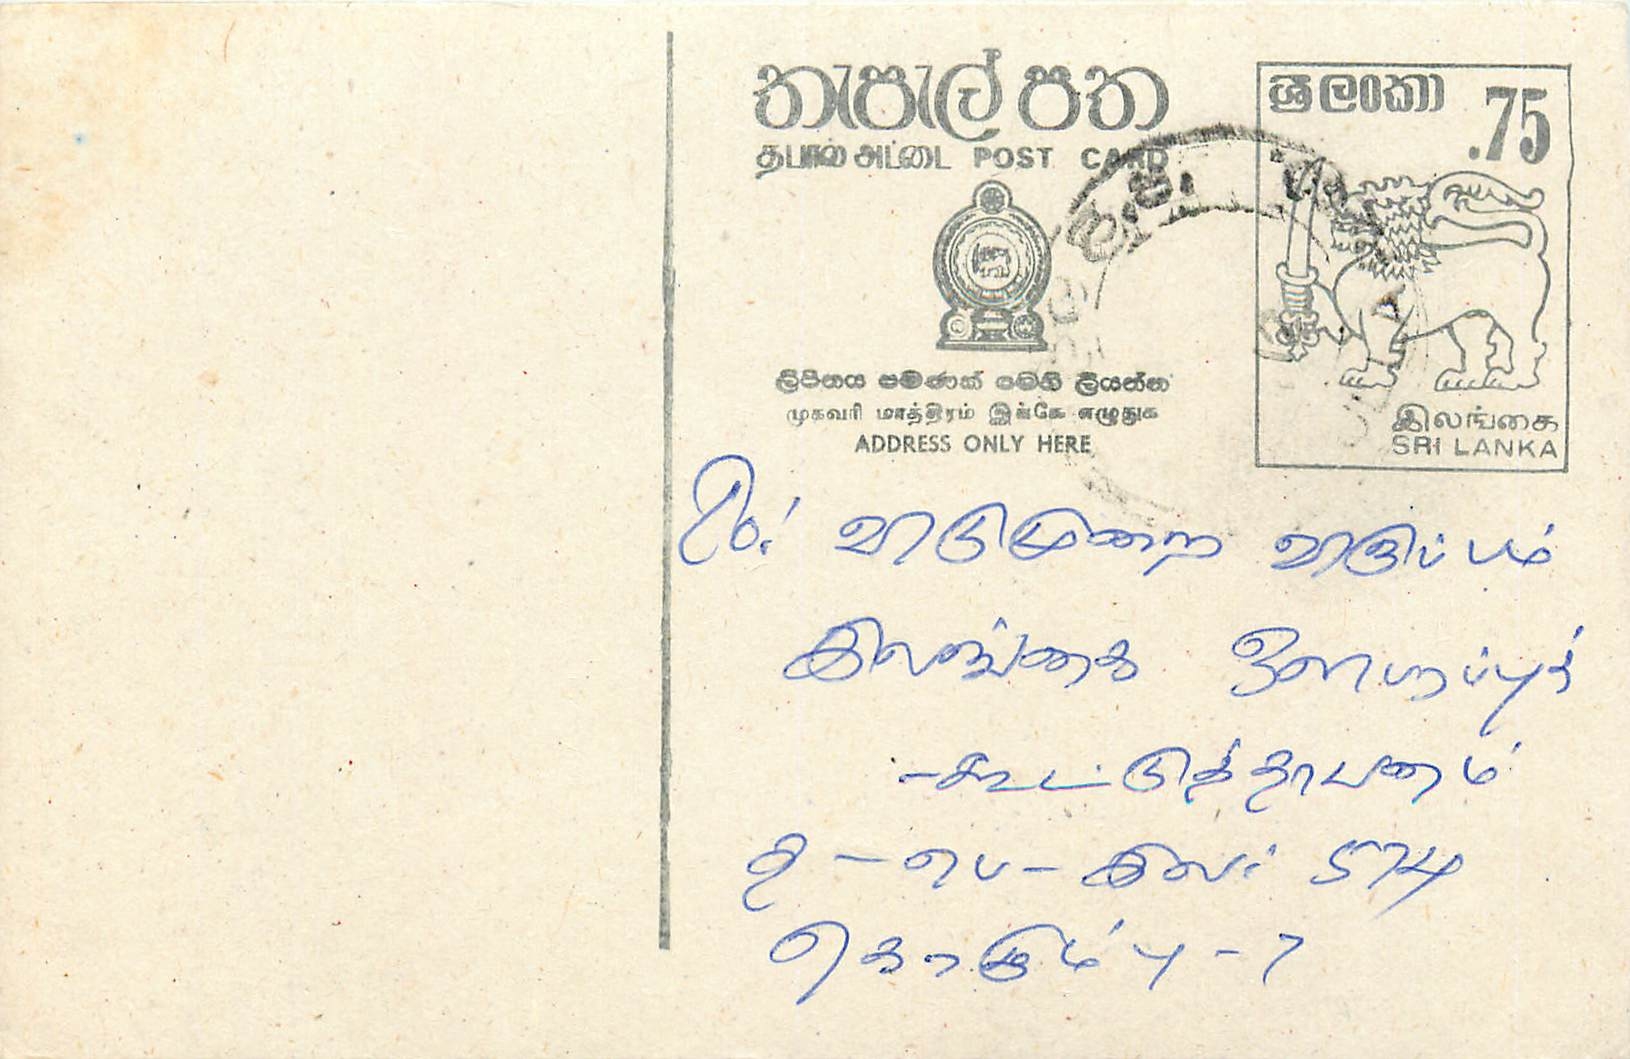 තැපැල් පත
தபால் அட்டை POST CARD
ශ්‍රී ලංකා .75
ලිපිනය පමණක් මෙහි ලියන්න
முகவரி மாத்திரம் இங்கே எழுதுக
ADDRESS ONLY HERE
இலங்கை
SRI LANKA
விடுமுறை விருப்பம்
இலங்கை ஒளிபரப்புக்
-கூட்டுத்தாபனம்
த - பெ - இல: 574
கொழும்பு - 7